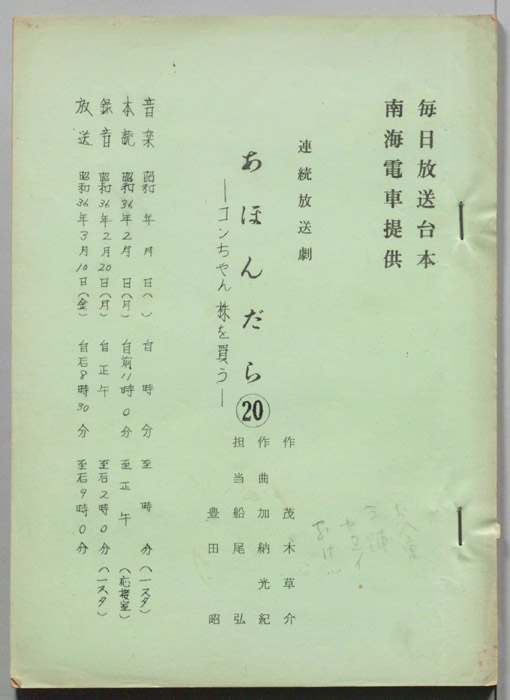 毎日放送台本
南海電車提供
連続放送劇
あほんだら⑳
―コンちゃん 株を買う―
作 茂木草介
作曲 加納光紀
担当 船尾弘
豊田昭
音楽 昭和 年 月 日( ) 自 時 分 至 時 分 (一スタ)
本読 昭和36年2月 日(月) 自前11時0分 至正午 (応接室)
録音 昭和36年2月20日(月) 自正午 至后2時0分 (一スタ)
放送 昭和36年3月10日(金) 自后8時30分 至后9時0分